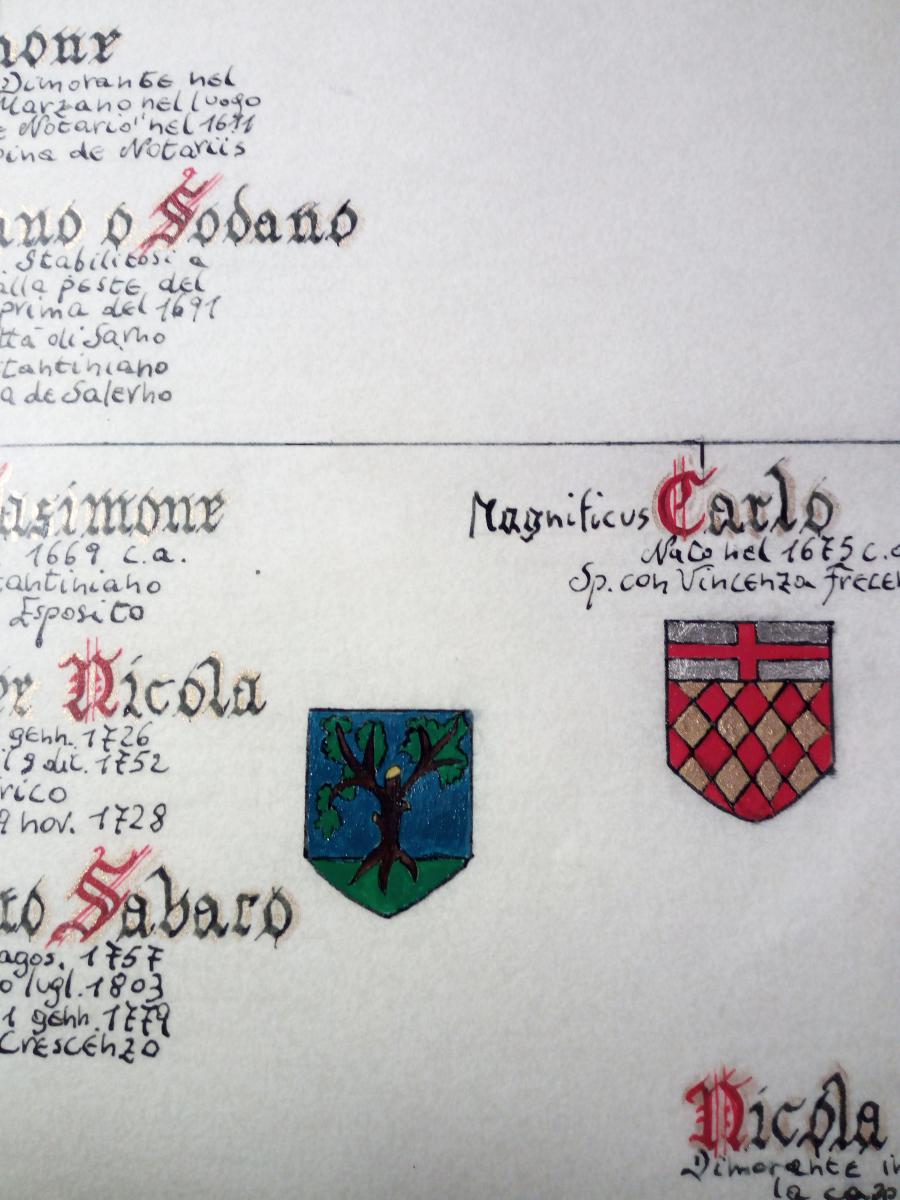 mone
Dimorante nel
Marzano nel luogo
e Notario" nel 1691
pina de Notariis
ano o Sodano
Stabilitosi a
alla peste del
prima del 1691
ttà di Sarno
tantiniano
a de Salerno
asimone
1669 c.a.
tantiniano
Esposito
Magnificus Carlo
Nato nel 1675 c.a
Sp. con Vincenza Frecen
er Nicola
genn. 1726
l 9 dic. 1752
rico
9 nov. 1728
to Sabato
agos. 1757
o lugl. 1803
1 genn. 1779
Crescenzo
Nicola
Dimorante in
la caso